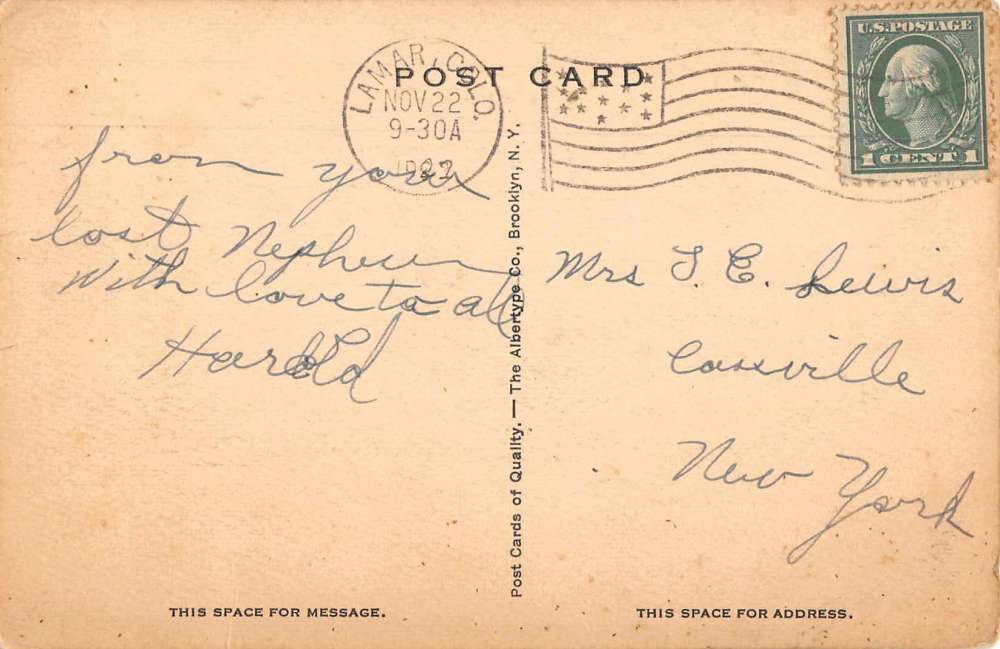 POST CARD
LAMAR, COLO.
NOV 22
9-30A
U.S. POSTAGE
1 CENT 1
from your
lost Nephew
With love to all
Harold
Post Cards of Quality. — The Albertype Co., Brooklyn, N. Y.
Mrs
Lewis
New York
THIS SPACE FOR MESSAGE.
THIS SPACE FOR ADDRESS.